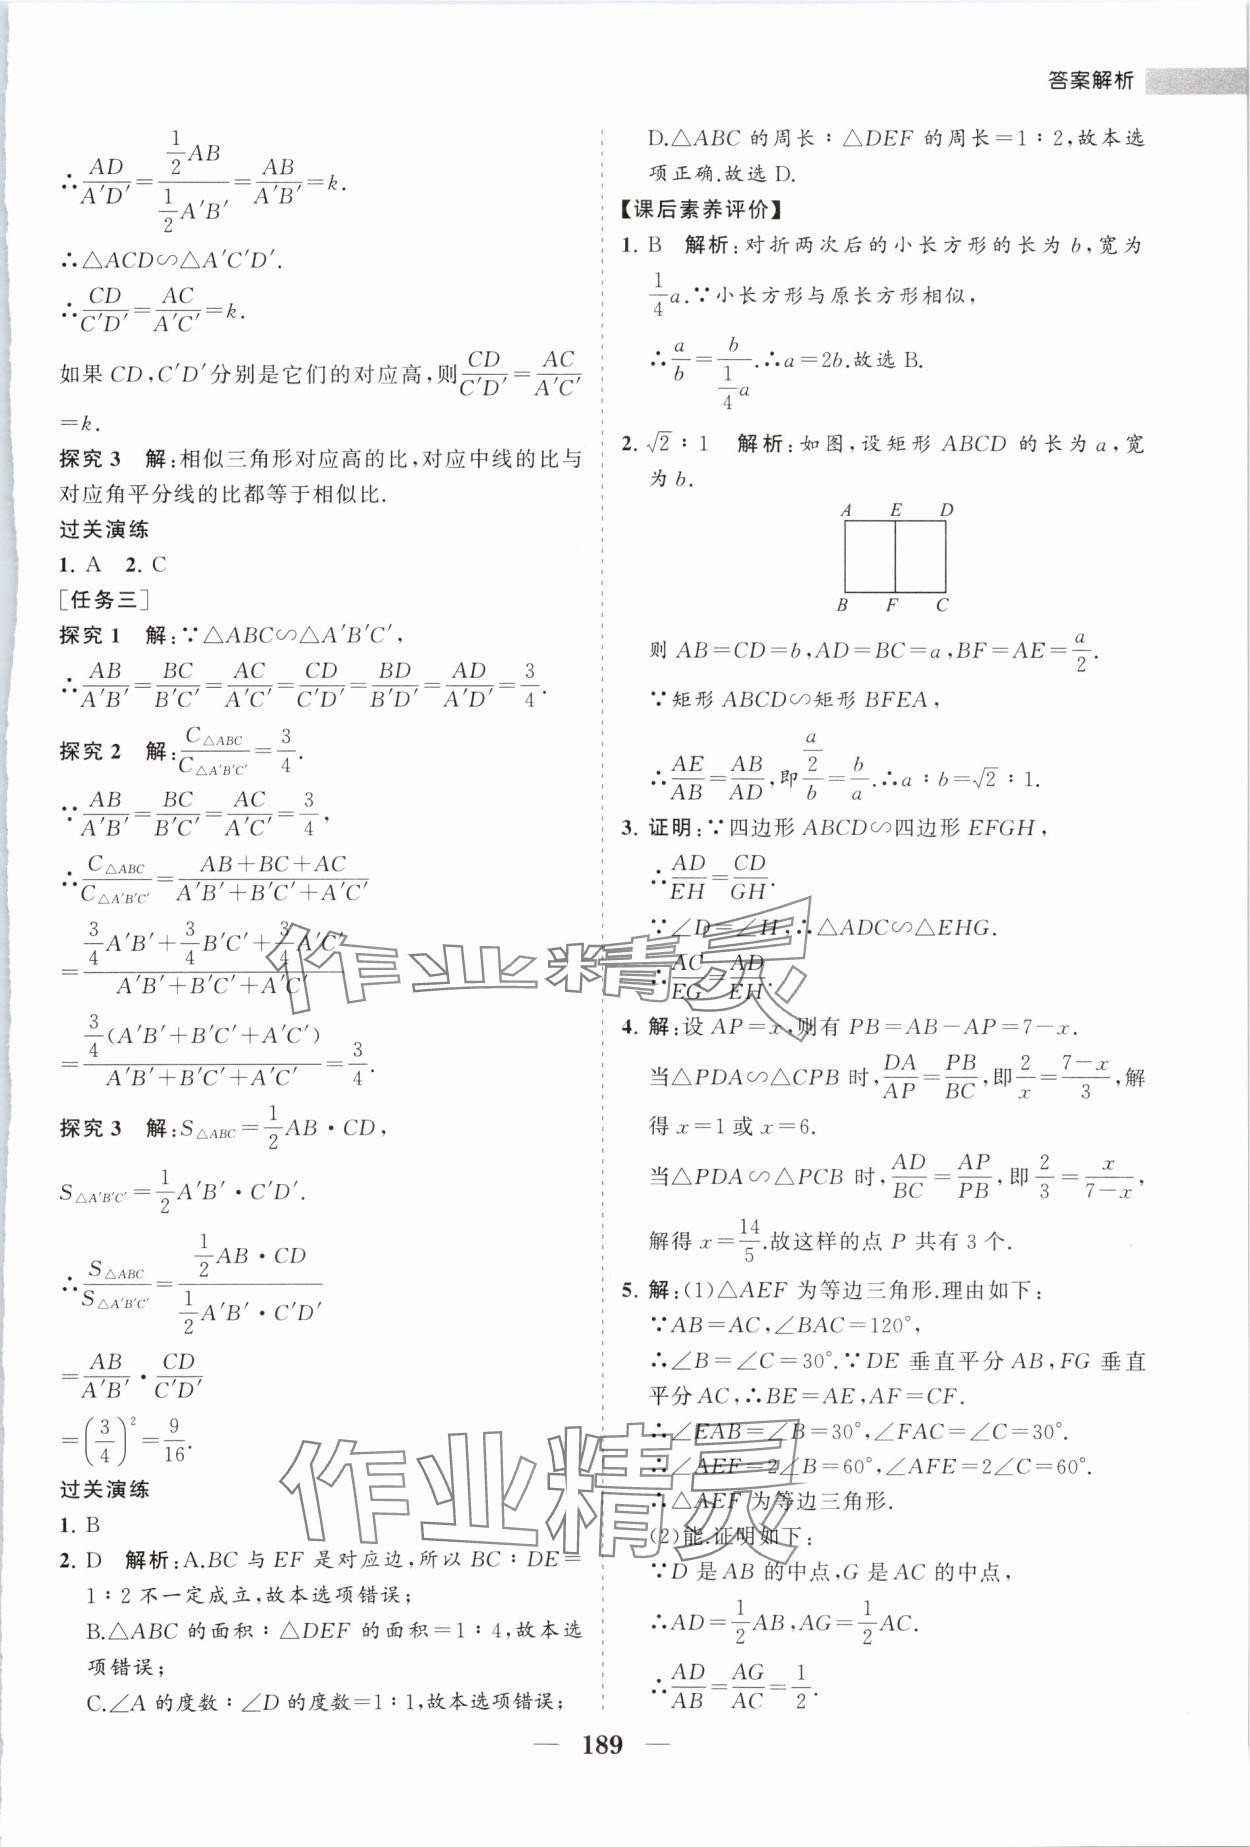 答案解析
∴AD/A′D′=(1/2 AB)/(1/2 A′B′)=AB/A′B′=k.
∴△ACD∽△A′C′D′.
∴CD/C′D′=AC/A′C′=k.
如果CD,C′D′分别是它们的对应高,则CD/C′D′=AC/A′C′
=k.
探究3 解:相似三角形对应高的比,对应中线的比与
对应角平分线的比都等于相似比.
过关演练
1. A 2. C
[任务三]
探究1 解:∵△ABC∽△A′B′C′,
∴AB/A′B′=BC/B′C′=AC/A′C′=CD/C′D′=BD/B′D′=AD/A′D′=3/4.
探究2 解:C△ABC/C△A′B′C′=3/4.
∵AB/A′B′=BC/B′C′=AC/A′C′=3/4,
∴C△ABC/C△A′B′C′=(AB+BC+AC)/(A′B′+B′C′+A′C′)
=(3/4 A′B′+3/4 B′C′+3/4 A′C′)/(A′B′+B′C′+A′C′)
=(3/4 (A′B′+B′C′+A′C′))/(A′B′+B′C′+A′C′)=3/4.
探究3 解:S△ABC=1/2 AB·CD,
S△A′B′C′=1/2 A′B′·C′D′.
∴S△ABC/S△A′B′C′=(1/2 AB·CD)/(1/2 A′B′·C′D′)
=AB/A′B′·CD/C′D′
=(3/4)²=9/16.
过关演练
1. B
2. D 解析:A.BC与EF是对应边,所以BC∶DE=
1∶2不一定成立,故本选项错误;
B.△ABC的面积∶△DEF的面积=1∶4,故本选
项错误;
C.∠A的度数∶∠D的度数=1∶1,故本选项错误;
D.△ABC的周长∶△DEF的周长=1∶2,故本选
项正确.故选D.
【课后素养评价】
1. B 解析:对折两次后的小长方形的长为b,宽为
1/4 a.∵小长方形与原长方形相似,
∴a/b=b/(1/4 a).∴a=2b.故选B.
2. √2∶1 解析:如图,设矩形ABCD的长为a,宽
为b.
A E D
B F C
则AB=CD=b,AD=BC=a,BF=AE=a/2.
∵矩形ABCD∽矩形BFEA,
∴AE/AB=AB/AD,即(a/2)/b=b/a.∴a∶b=√2∶1.
3. 证明:∵四边形ABCD∽四边形EFGH,
∴AD/EH=CD/GH.
∵∠D=∠H,∴△ADC∽△EHG.
∴AC/EG=AD/EH.
4. 解:设AP=x,则有PB=AB-AP=7-x.
当△PDA∽△CPB时,DA/AP=PB/BC,即2/x=(7-x)/3,解
得x=1或x=6.
当△PDA∽△PCB时,AD/BC=AP/PB,即2/3=x/(7-x),
解得x=14/5.故这样的点P共有3个.
5. 解:(1)△AEF为等边三角形.理由如下:
∵AB=AC,∠BAC=120°,
∴∠B=∠C=30°.∵DE垂直平分AB,FG垂直
平分AC,∴BE=AE,AF=CF.
∴∠EAB=∠B=30°,∠FAC=∠C=30°.
∴∠AEF=2∠B=60°,∠AFE=2∠C=60°.
∴△AEF为等边三角形.
(2)能.证明如下:
∵D是AB的中点,G是AC的中点,
∴AD=1/2 AB,AG=1/2 AC.
∴AD/AB=AG/AC=1/2.
作业精灵
作业精灵
— 189 —